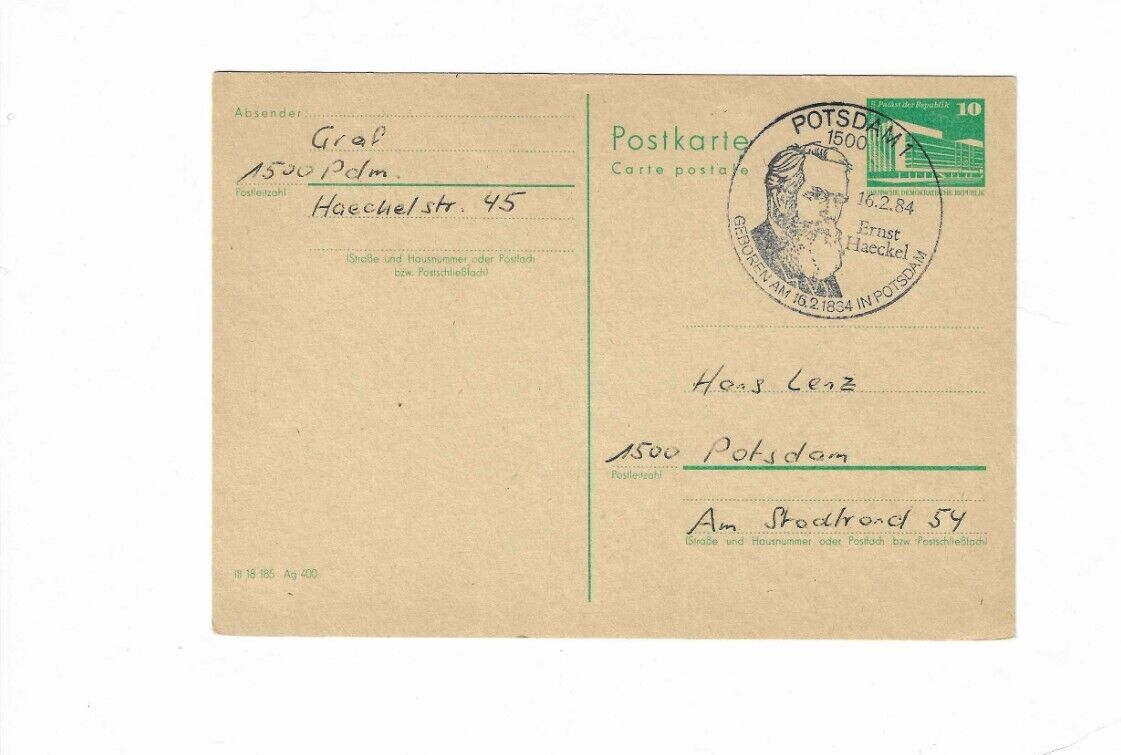 Absender:
Graf
1500 Pdm.
Postleitzahl
Haeckelstr. 45
(Straße und Hausnummer oder Postfach
bzw. Postschließfach)
III 18 185 Ag 400
Postkarte
Carte postale
Palast der Republik 10
DEUTSCHE DEMOKRATISCHE REPUBLIK
POTSDAM 1
1500
16.2.84
Ernst
Haeckel
GEBOREN AM 16.2.1834 IN POTSDAM
Hans Lenz
1500 Potsdam
Postleitzahl
Am Stadtrand 54
(Straße und Hausnummer oder Postfach bzw. Postschließfach)